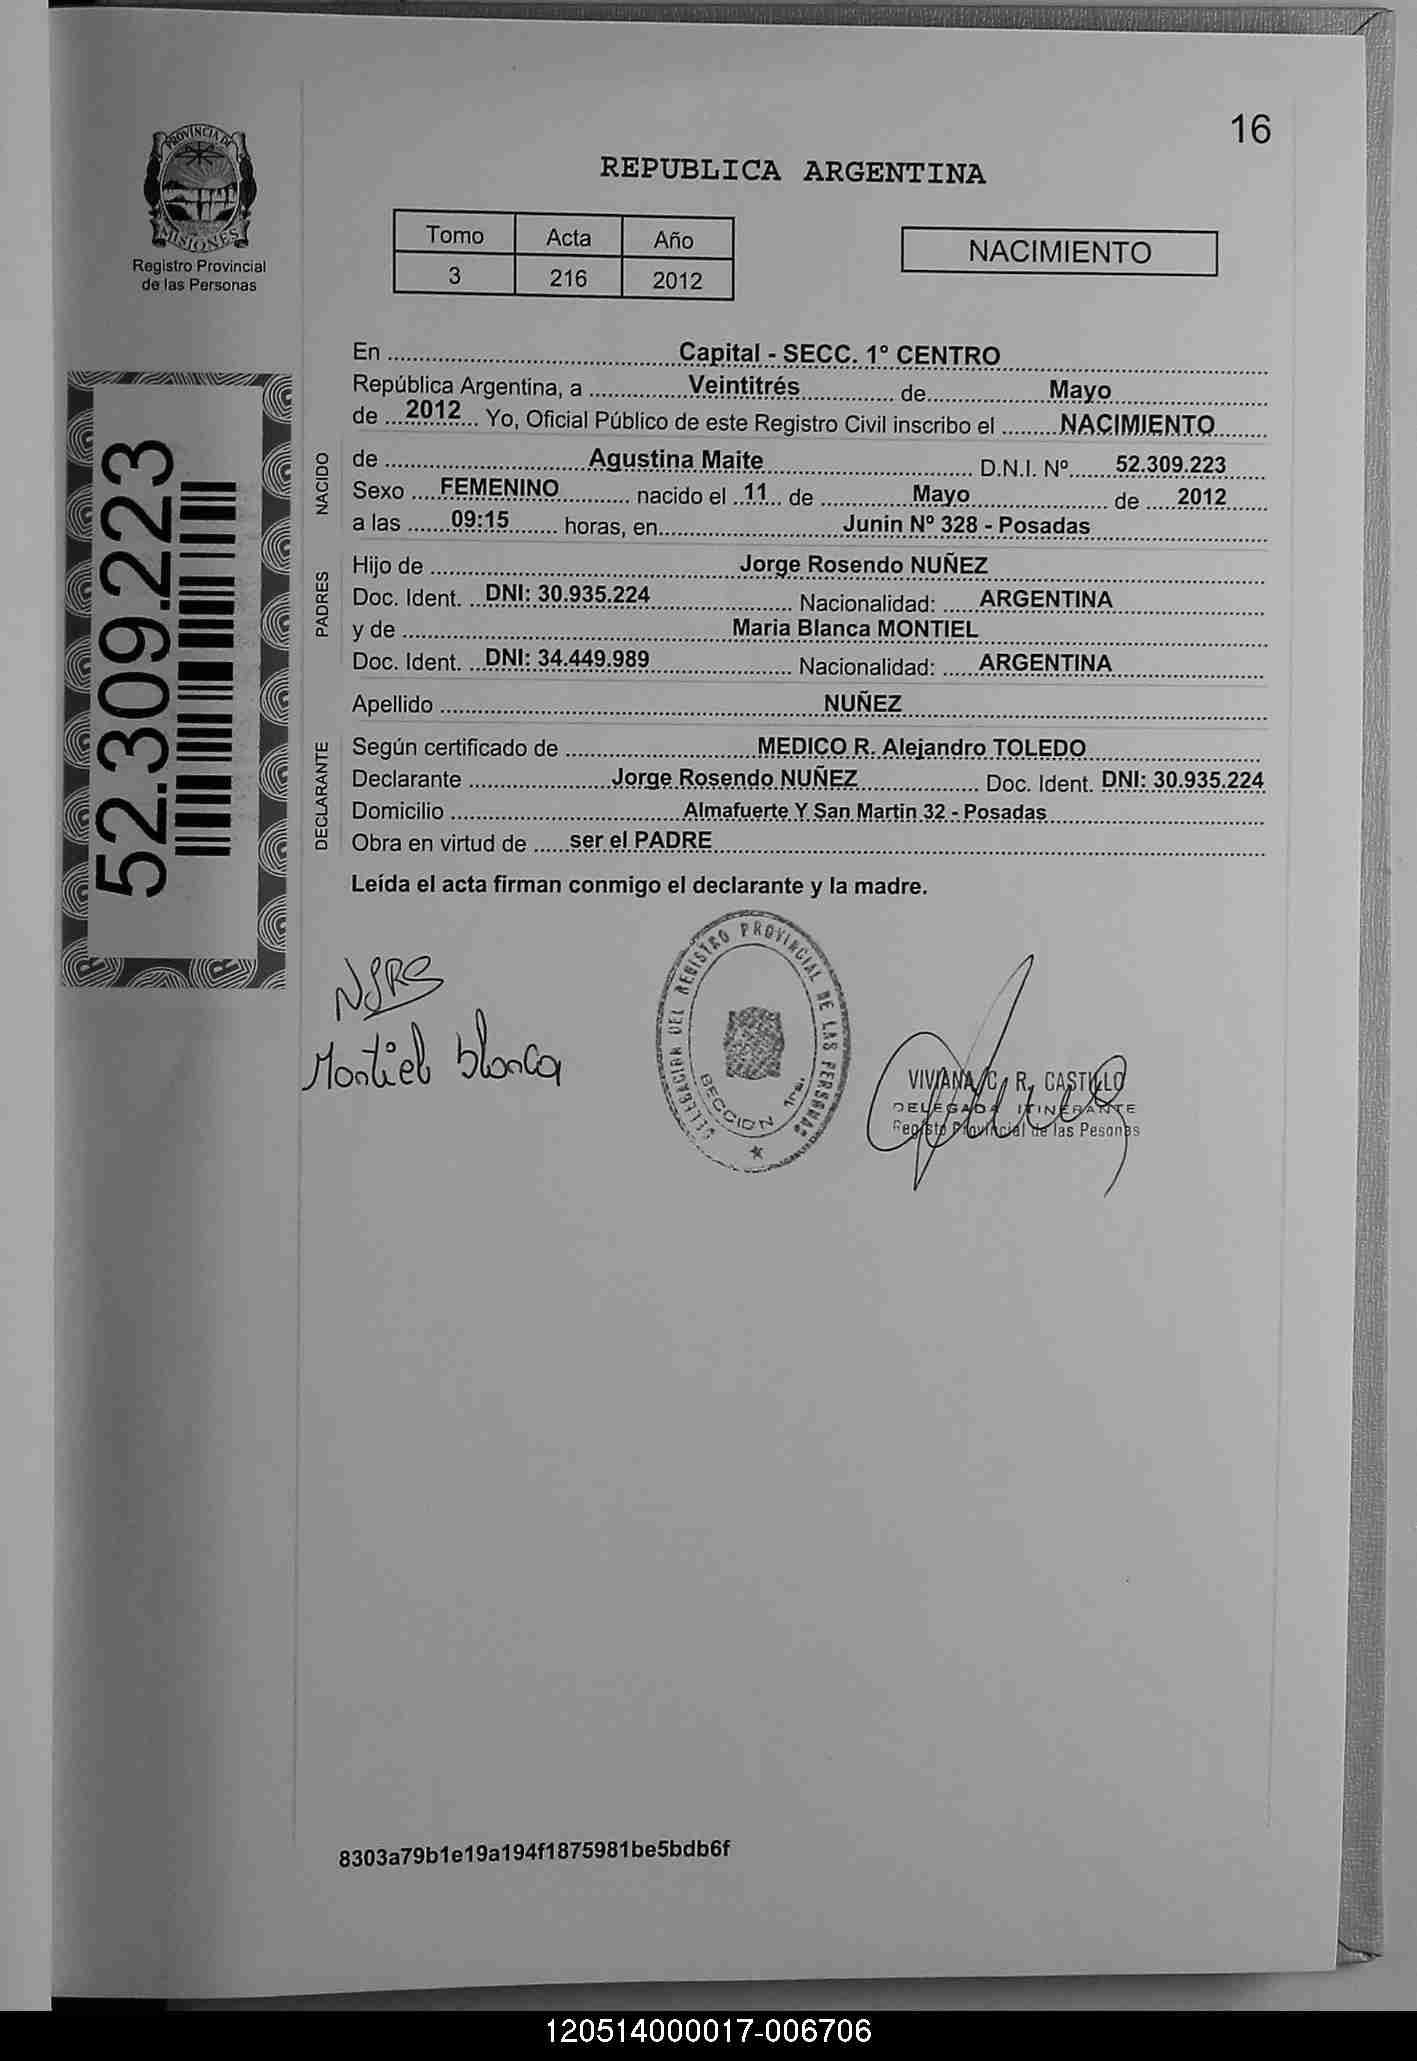 16
PROVINCIA DE
MISIONES
Registro Provincial
de las Personas
REPUBLICA ARGENTINA
Tomo Acta Año
3 216 2012
NACIMIENTO
52.309.223
En Capital - SECC. 1° CENTRO
República Argentina, a Veintitrés de Mayo
de 2012 Yo, Oficial Público de este Registro Civil inscribo el NACIMIENTO
NACIDO
de Agustina Maite D.N.I. Nº 52.309.223
Sexo FEMENINO nacido el 11 de Mayo de 2012
a las 09:15 horas, en Junin Nº 328 - Posadas
PADRES
Hijo de Jorge Rosendo NUÑEZ
Doc. Ident. DNI: 30.935.224 Nacionalidad: ARGENTINA
y de Maria Blanca MONTIEL
Doc. Ident. DNI: 34.449.989 Nacionalidad: ARGENTINA
Apellido NUÑEZ
DECLARANTE
Según certificado de MEDICO R. Alejandro TOLEDO
Declarante Jorge Rosendo NUÑEZ Doc. Ident. DNI: 30.935.224
Domicilio Almafuerte Y San Martin 32 - Posadas
Obra en virtud de ser el PADRE
Leída el acta firman conmigo el declarante y la madre.
Montiel blanca
DELEGACION DEL REGISTRO PROVINCIAL DE LAS PERSONAS
SECCION 1ra.
VIVIANA C. R. CASTILLO
DELEGADA ITINERANTE
Registo Provincial de las Pesonas
8303a79b1e19a194f1875981be5bdb6f
120514000017-006706